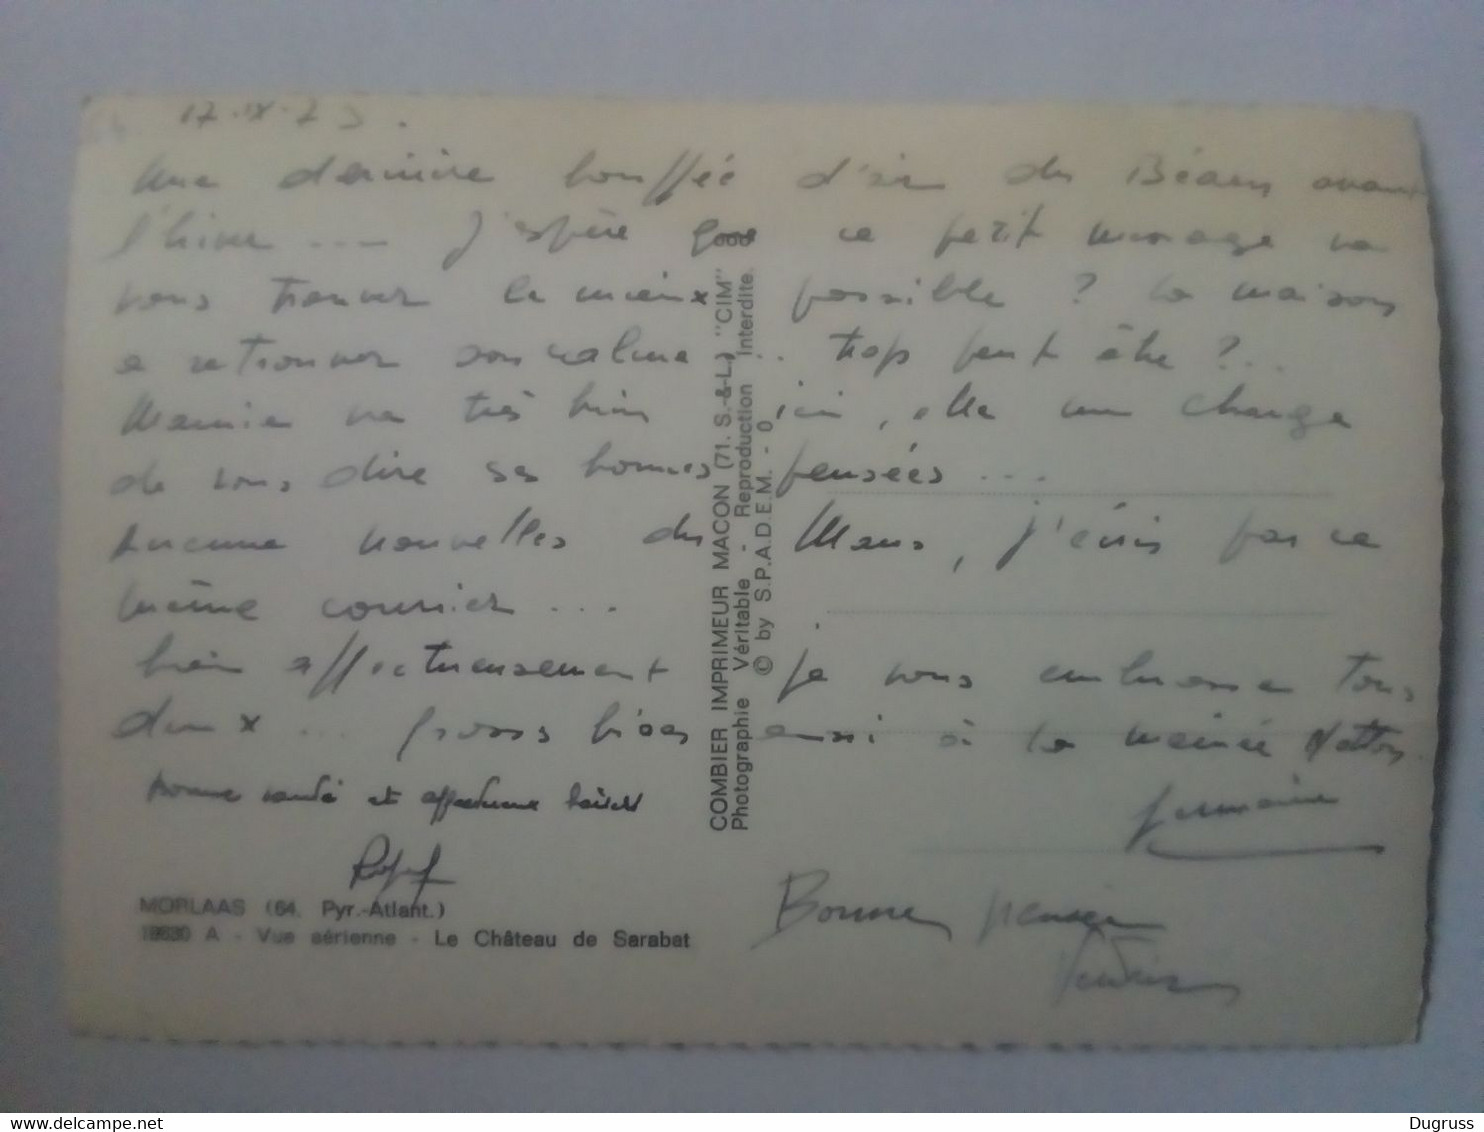 17-IX-73.
Une dernière bouffée d'air du Béarn avant
l'hiver .... J'espère que ce petit message va
vous trouver le mieux possible ? La maison
a retrouver son calme ... trop peut être ?...
Mamie va très bien ici, elle me charge
de vous dire ses bonnes pensées ...
Aucune nouvelles du Mans, j'écris par ce
même courrier ...
bien affectueusement je vous embrasse tous
deux ... gross bises aussi à la
Germaine
bonne santé et affectueux baisers
Bonnes pensées
COMBIER IMPRIMEUR MACON (71. S.-&-L.) "CIM"
Photographie Véritable - Reproduction Interdite.
© by S.P.A.D.E.M. - 0
MORLAAS (64. Pyr.-Atlant.)
18630 A - Vue aérienne - Le Château de Sarabat
www.delcampe.net
Dugruss